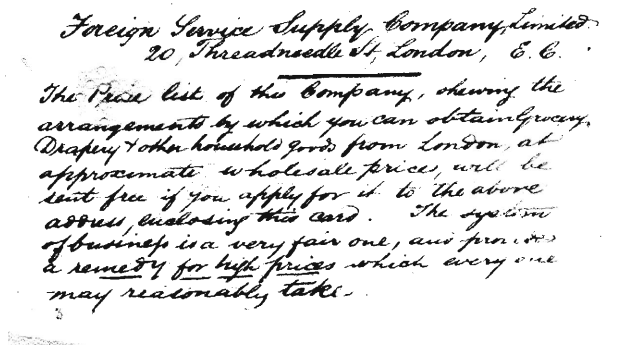 Foreign Service Supply Company, Limited.
20, Threadneedle St, London, E. C.
The Price list of this Company, shewing the
arrangements by which you can obtain Grocery,
Drapery & other household goods from London, at
approximate wholesale prices, will be
sent free if you apply for it to the above
address, enclosing this card. The system
of business is a very fair one, and provides
a remedy for high prices which every one
may reasonably take.